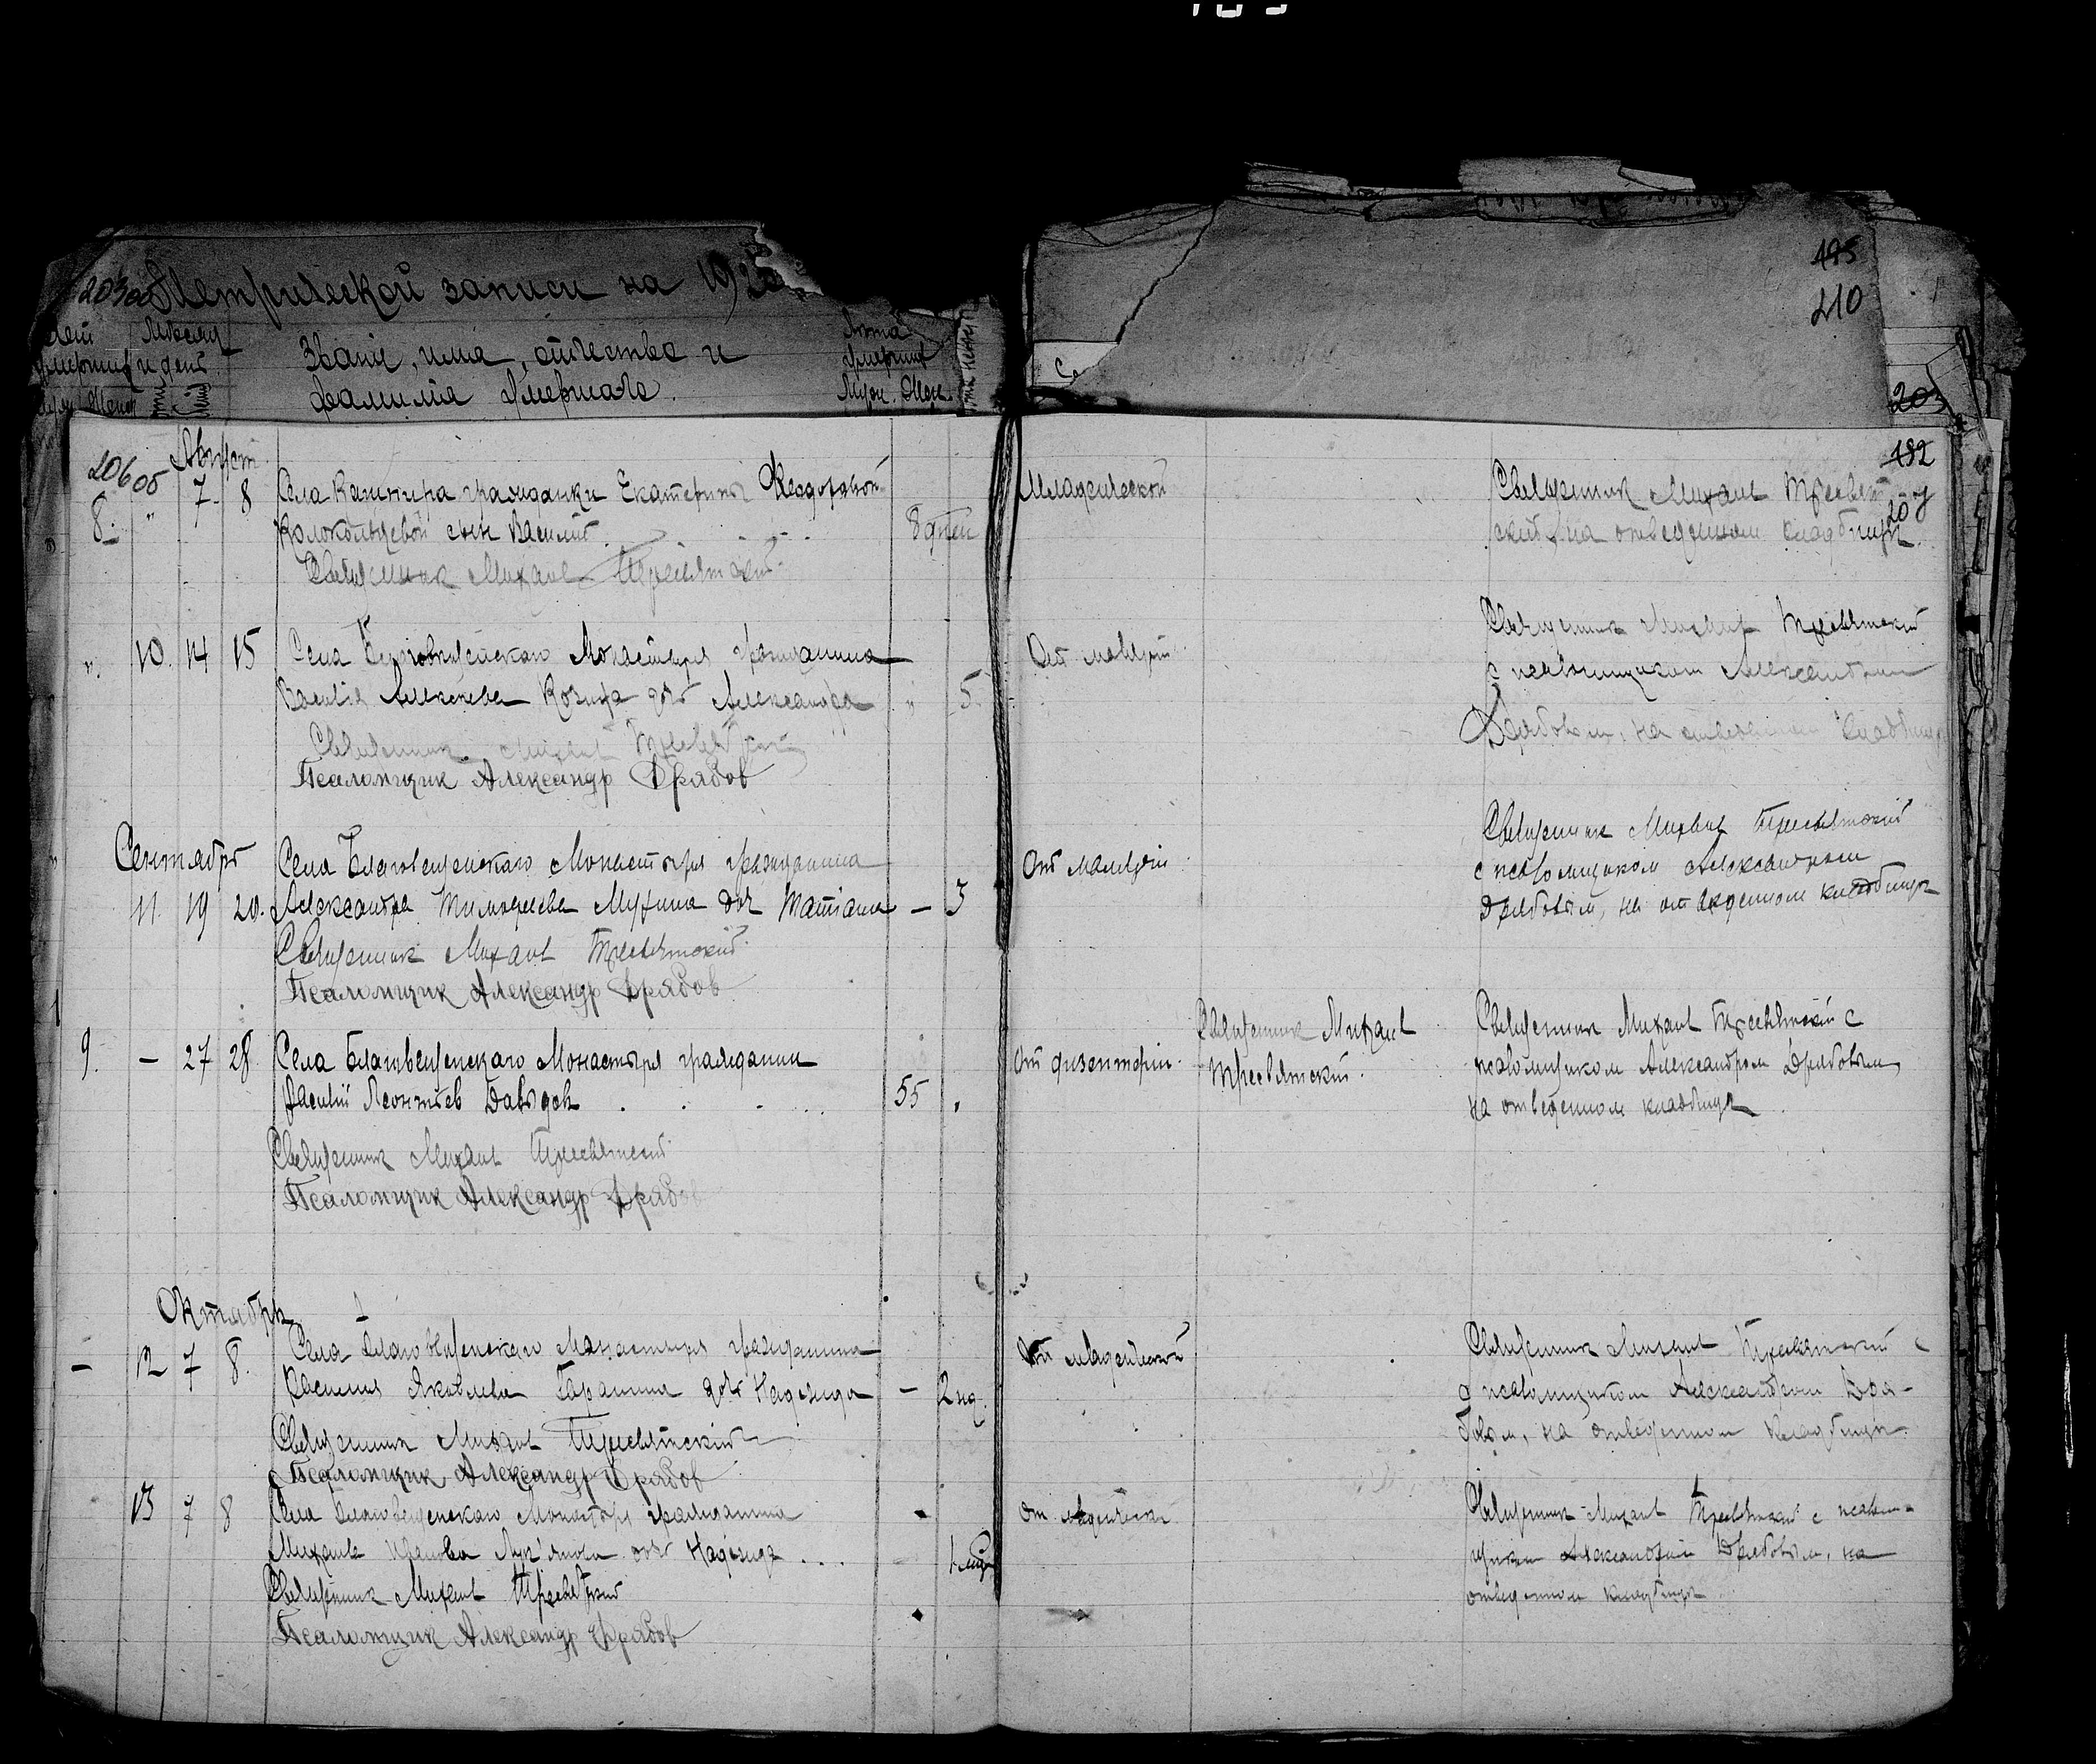 203об Метрической записи на 1925
Месяц
и день
Звание, имя, отчество и
фамилия умершаго.
Лета
умерших
Муж. Жен.
195
210
203
206об
Август
182
8. " 7 8 Села гражданки Екатерины
Колокольцевой сын Василий 8 дней
Священник Михаил Тресвятский
Младенческой
Священник Михаил Тресвят
ский, на отведенном кладбище.
207
". 10. 14 15 Села Благовещенскаго Монастыря гражданина
Василия Алексеева дочь Александра " 5
Священник Михаил Тресвятский
Псаломщик Александр Дрябов
От малярии
Священник Михаил Тресвятский
с псаломщиком Александром
Дрябовым, на отведенном кладбище
Сентябрь
Села Благовещенскаго Монастыря гражданина
11. 19 20. Александра Тимофеева Мухина дочь Татиана – 3
Священник Михаил Тресвятский
Псаломщик Александр Дрябов
От малярии
Священник Михаил Тресвятский
с псаломщиком Александром
Дрябовым, на отведенном кладбище
9. – 27 28 Села Благовещенскаго Монастыря гражданин
Василий Леонтьев Давыдов 55
Священник Михаил Тресвятский
Псаломщик Александр Дрябов
От дизентерии
Священник Михаил
Тресвятский.
Священник Михаил Тресвятский с
псаломщиком Александром Дрябовым,
на отведенном кладбище
Октябрь
– 12 7 8. Села Благовещенскаго Монастыря гражданина
Василия Яковлева дочь Надежда – 2 нд.
Священник Михаил Тресвятский
Псаломщик Александр Дрябов
От младенческой
Священник Михаил Тресвятский
с псаломщиком Александром Дря-
бовым, на отведенном кладбище.
13 7 8 Села Благовещенскаго Монастыря гражданина
Михаила Иванова дочь Надежда
Священник Михаил Тресвятский
Псаломщик Александр Дрябов
От младенческ
Священник Михаил Тресвятский с псалом-
щиком Александром Дрябовым, на
отведенном кладбище